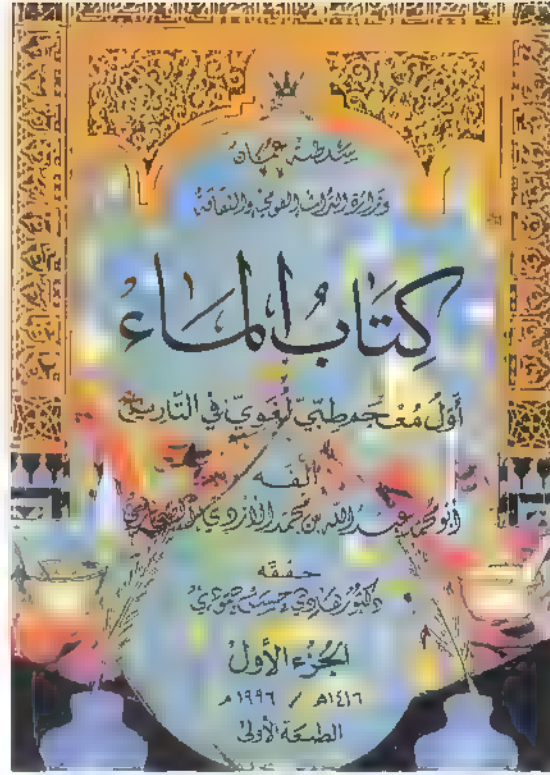 سلطنة عمان
وزارة التراث القومي والثقافة
كِتَابُ المَاء
أَوّلُ مُعْجَم طبّي لُغَويّ في التّاريخ
ألّفه
أبو محمد عبد الله بن محمد الأزدي الصحاري
حققه
دكتور هادي حسن حمودي
الجُزء الأول
١٤١٦هـ / ١٩٩٦م
الطبعة الأولى